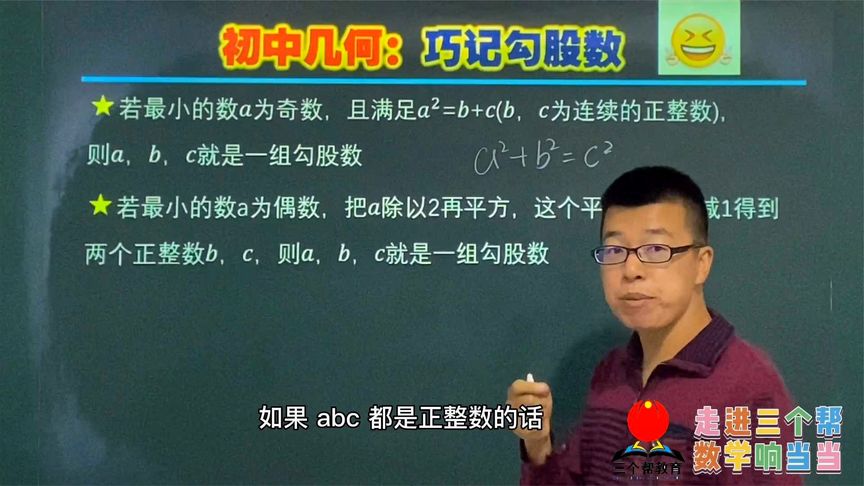 初中几何：巧记勾股数
★若最小的数a为奇数，且满足a²=b+c(b，c为连续的正整数)，
则a，b，c就是一组勾股数
a²+b²=c²
★若最小的数a为偶数，把a除以2再平方，这个平 减1得到
两个正整数b，c，则a，b，c就是一组勾股数
如果 abc 都是正整数的话
三个帮教育
走进三个帮
数学响当当